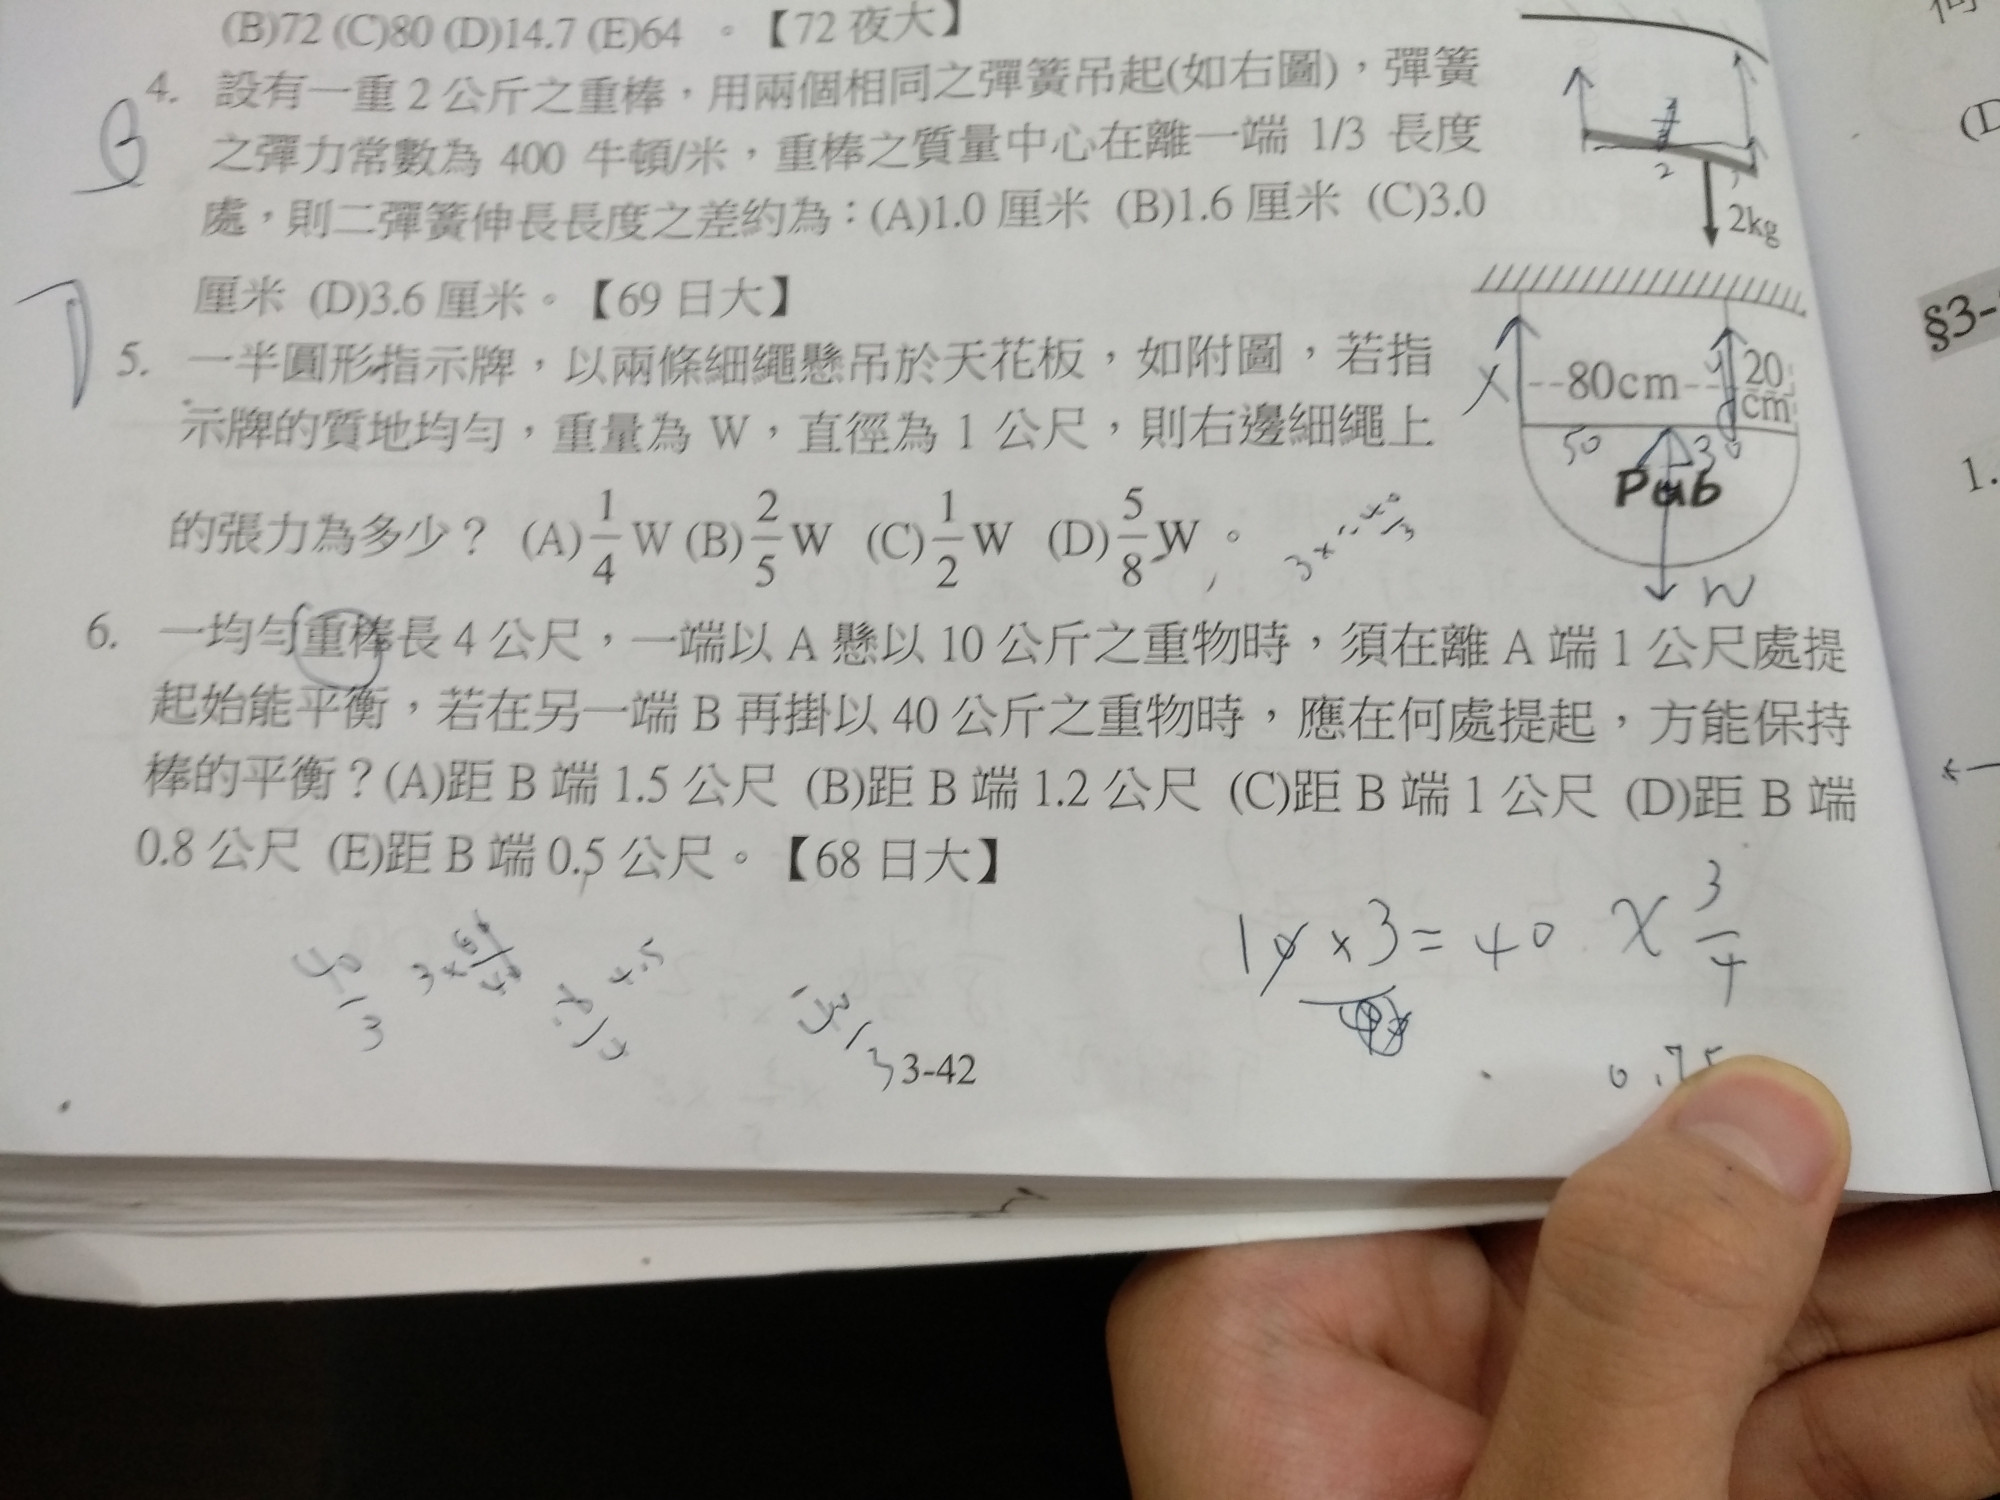 (B)72 (C)80 (D)14.7 (E)64 。【72 夜大】
B
4. 設有一重 2 公斤之重棒，用兩個相同之彈簧吊起(如右圖)，彈簧
之彈力常數為 400 牛頓/米，重棒之質量中心在離一端 1/3 長度
處，則二彈簧伸長長度之差約為：(A)1.0 厘米 (B)1.6 厘米 (C)3.0
厘米 (D)3.6 厘米。【69 日大】
2
2kg
D
5. 一半圓形指示牌，以兩條細繩懸吊於天花板，如附圖，若指
示牌的質地均勻，重量為 W，直徑為 1 公尺，則右邊細繩上
的張力為多少？ (A)1/4 W (B)2/5 W (C)1/2 W (D)5/8 W 。
X
80cm
y
20
cm
50
30
Pub
W
6. 一均勻重棒長 4 公尺，一端以 A 懸以 10 公斤之重物時，須在離 A 端 1 公尺處提
起始能平衡，若在另一端 B 再掛以 40 公斤之重物時，應在何處提起，方能保持
棒的平衡？(A)距 B 端 1.5 公尺 (B)距 B 端 1.2 公尺 (C)距 B 端 1 公尺 (D)距 B 端
0.8 公尺 (E)距 B 端 0.5 公尺。【68 日大】
10 x 3 = 40 x 3/4
0.75
40/3
13/3
3-42
§3-
1.
(D